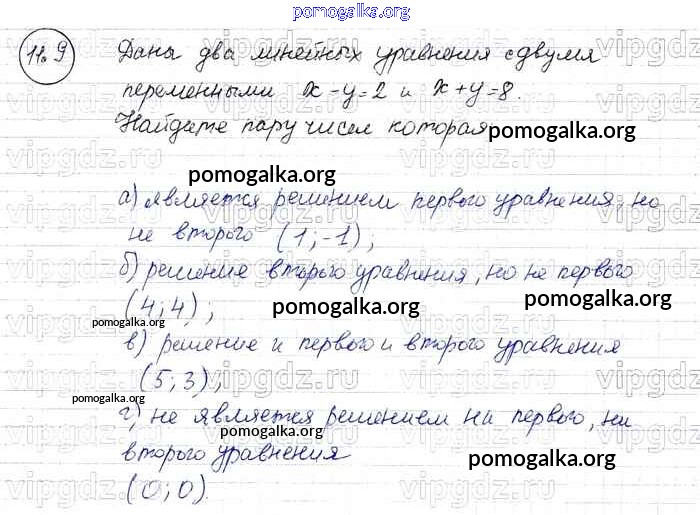 pomogalka.org
11.9 Даны два линейных уравнения с двумя
переменными x-y=2 и x+y=8.
Найдите пару чисел которая
pomogalka.org
pomogalka.org
а) является решением первого уравнения, но
не второго (1;-1);
б) решение второго уравнения, но не первого
(4;4);
pomogalka.org
pomogalka.org
pomogalka.org
в) решение и первого и второго уравнения
(5;3);
pomogalka.org
г) не является решением ни первого, ни
pomogalka.org
второго уравнения
pomogalka.org
(0;0).
vipgdz.ru